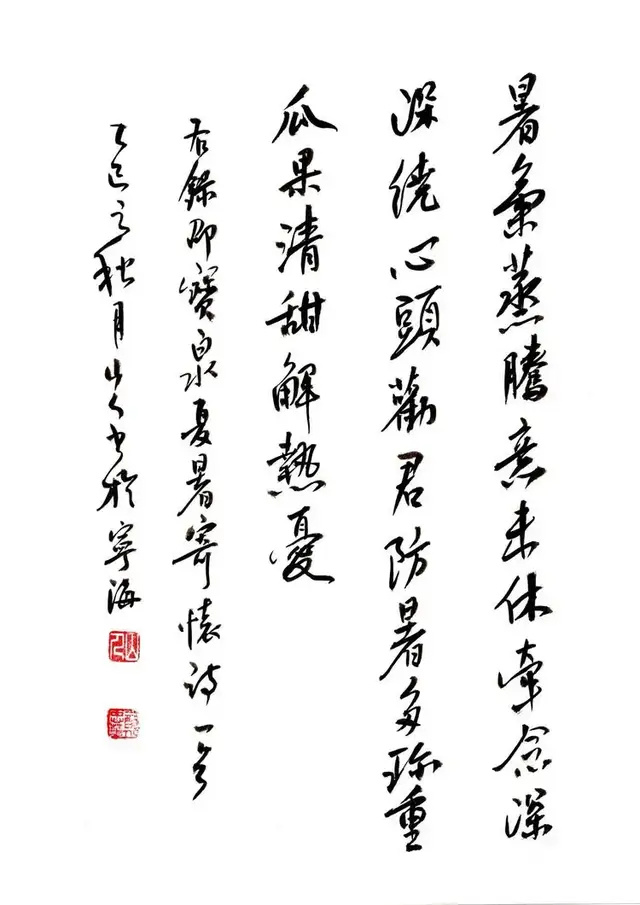 暑氣蒸騰意未休牽念深
深繞心頭勸君防暑多珍重
瓜果清甜解熱憂
右錄邵寶泉夏暑寄懷詩一首
乙巳之秋月山人書於寧海